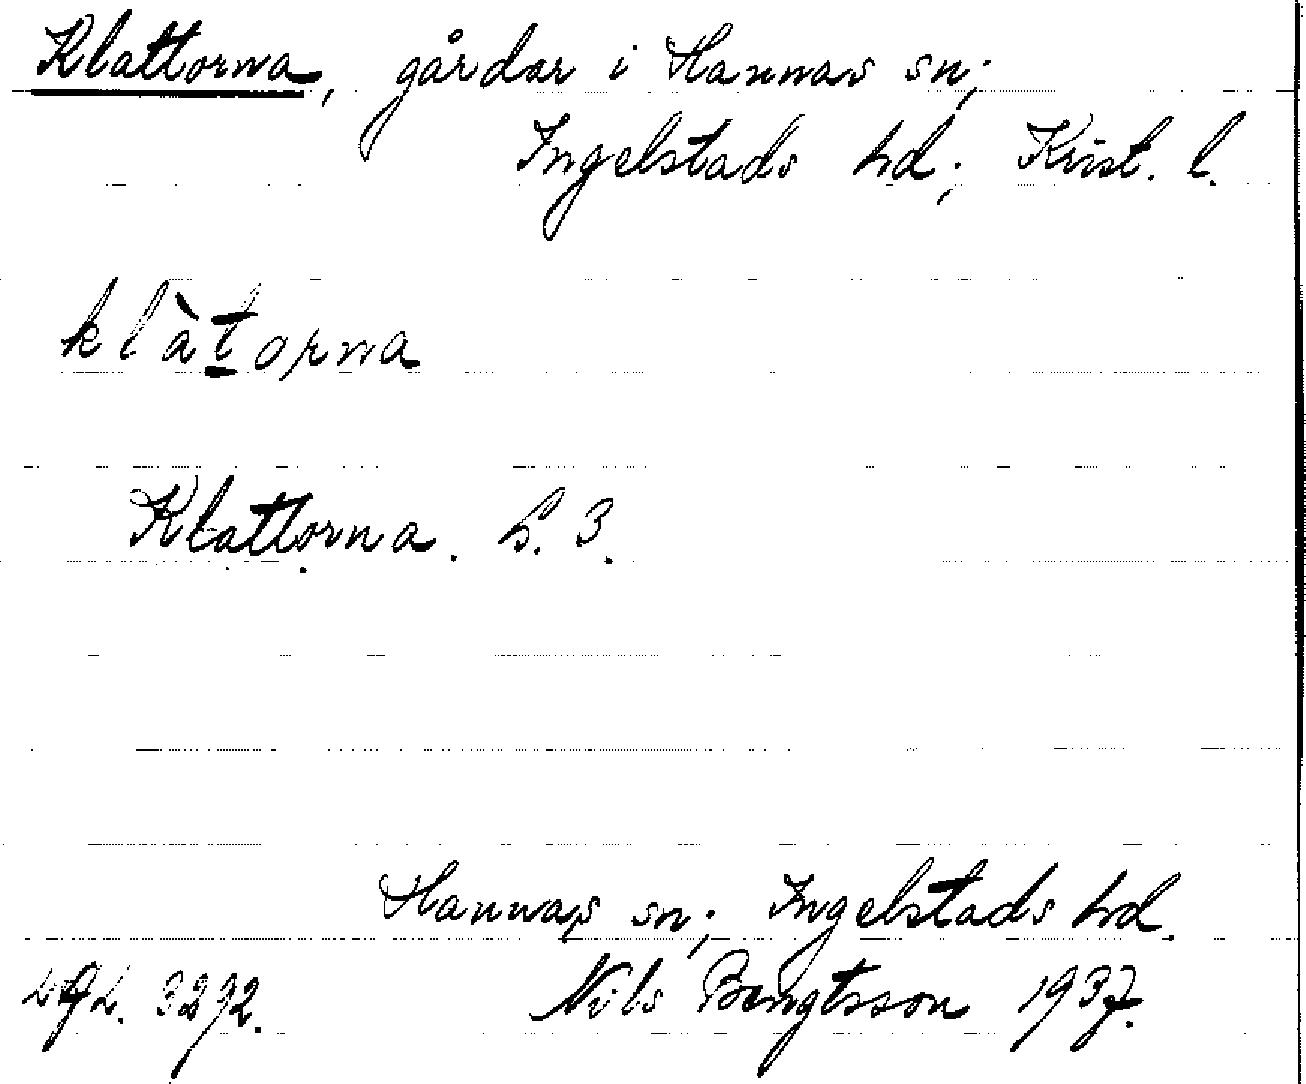 Klattorna, gårdar i Hannas sn;
Ingelstads hd; Krist. l.
klàt̲orna
Klattorna. S. 3.
Hannas sn; Ingelstads hd.
3292. Nils Bengtsson 1937.